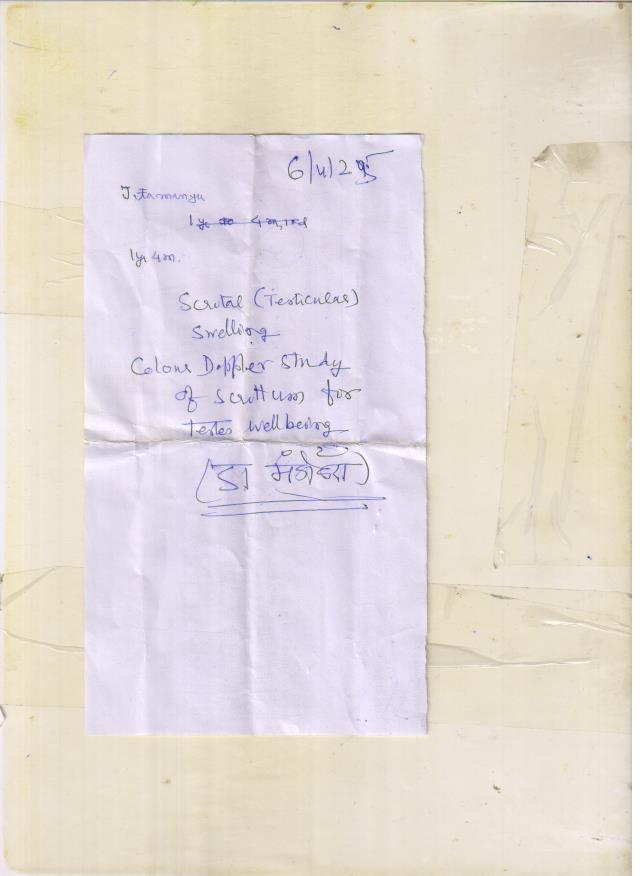 6/4/25
Jitamanyu
1 yr 4 m.
Scrotal (Testicular)
Swelling
Colour Doppler Study
of Scrotum for
Testes wellbeing
(डा